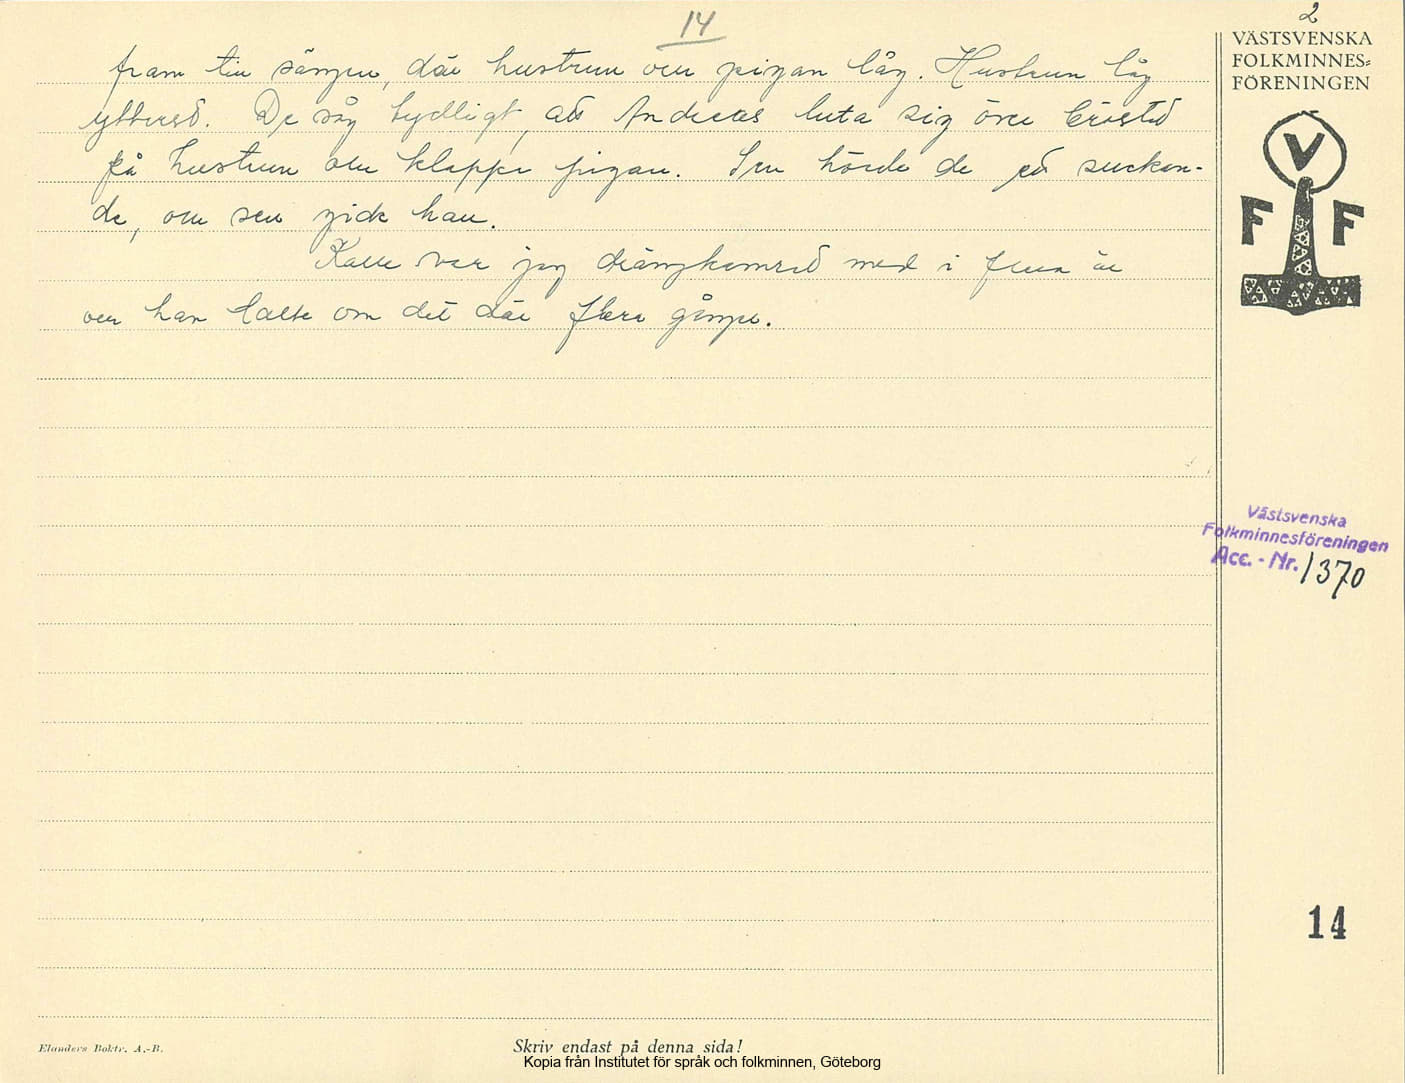 14
2
VÄSTSVENSKA
FOLKMINNES=
FÖRENINGEN
fram till sängen, där hustrun och pigan låg. Hustrun låg
ytterst. De såg tydligt, att Andreas luta sig över bröstet
på hustrun och klappa pigan. Sen hörde de ett suckan-
de, och sen gick han.
Kalle var jag drängkamrat med i flera år
och han talte om det där flera gånger.
V
F F
Västsvenska
Folkminnesföreningen
Acc. - Nr. 1370
14
Elanders Boktr. A.-B.
Skriv endast på denna sida!
Kopia från Institutet för språk och folkminnen, Göteborg